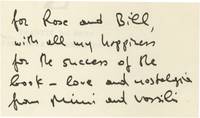 for Rose and Bill,
with all my happiness
for the success of the
book – love and nostalgia
from Mimi and Vassili